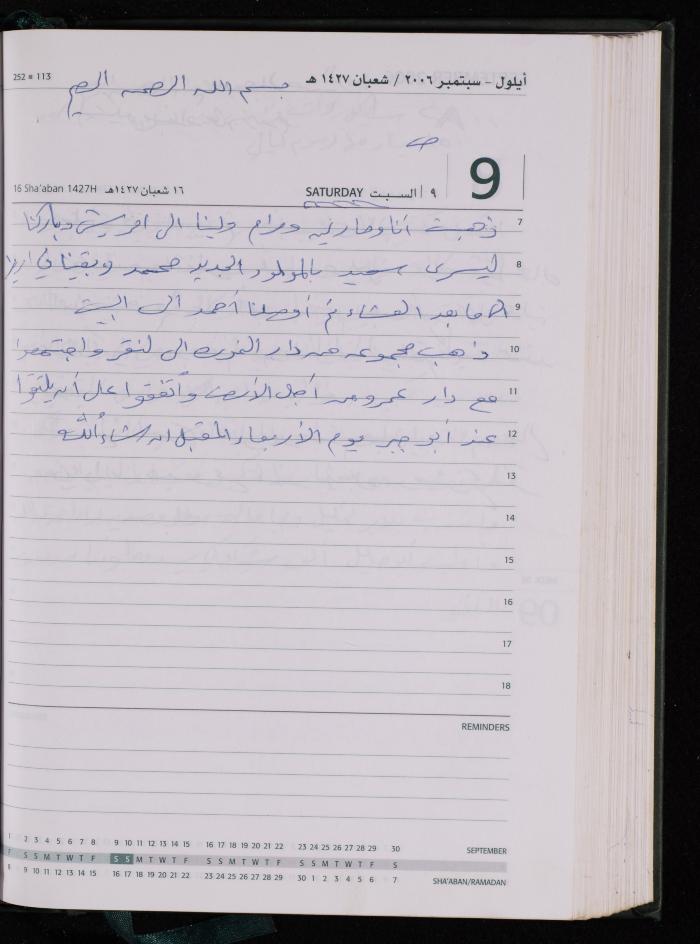 252 ■ 113
أيلول – سبتمبر ٢٠٠٦ / شعبان ١٤٢٧ هـ
بسم الله الرحمن الرحيم
16 Sha'aban 1427H ١٦ شعبان ١٤٢٧هـ
SATURDAY السبت ٩
9
7 ذهبت أنا ومارية ومرام ولينا الى وباركنا
8 ليسرى سعيد بالمولود الجديد محمد وبقينا في
9 الى ما بعد العشاء ثم أوصلنا أحمد الى البيت
10 ذهب مجموعه من دار الى لنقر واجتمعوا
11 مع دار عمرو من أجل الأرض وأتفقوا على أن يلتقوا
12 عند أبو جبر يوم الأربعاء المقبل ان شاء الله
13
14
15
16
17
18
REMINDERS
1 2 3 4 5 6 7 8 9 10 11 12 13 14 15 16 17 18 19 20 21 22 23 24 25 26 27 28 29 30 SEPTEMBER
F S S M T W T F S S M T W T F S S M T W T F S S M T W T F S
8 9 10 11 12 13 14 15 16 17 18 19 20 21 22 23 24 25 26 27 28 29 30 1 2 3 4 5 6 7 SHA'ABAN/RAMADAN